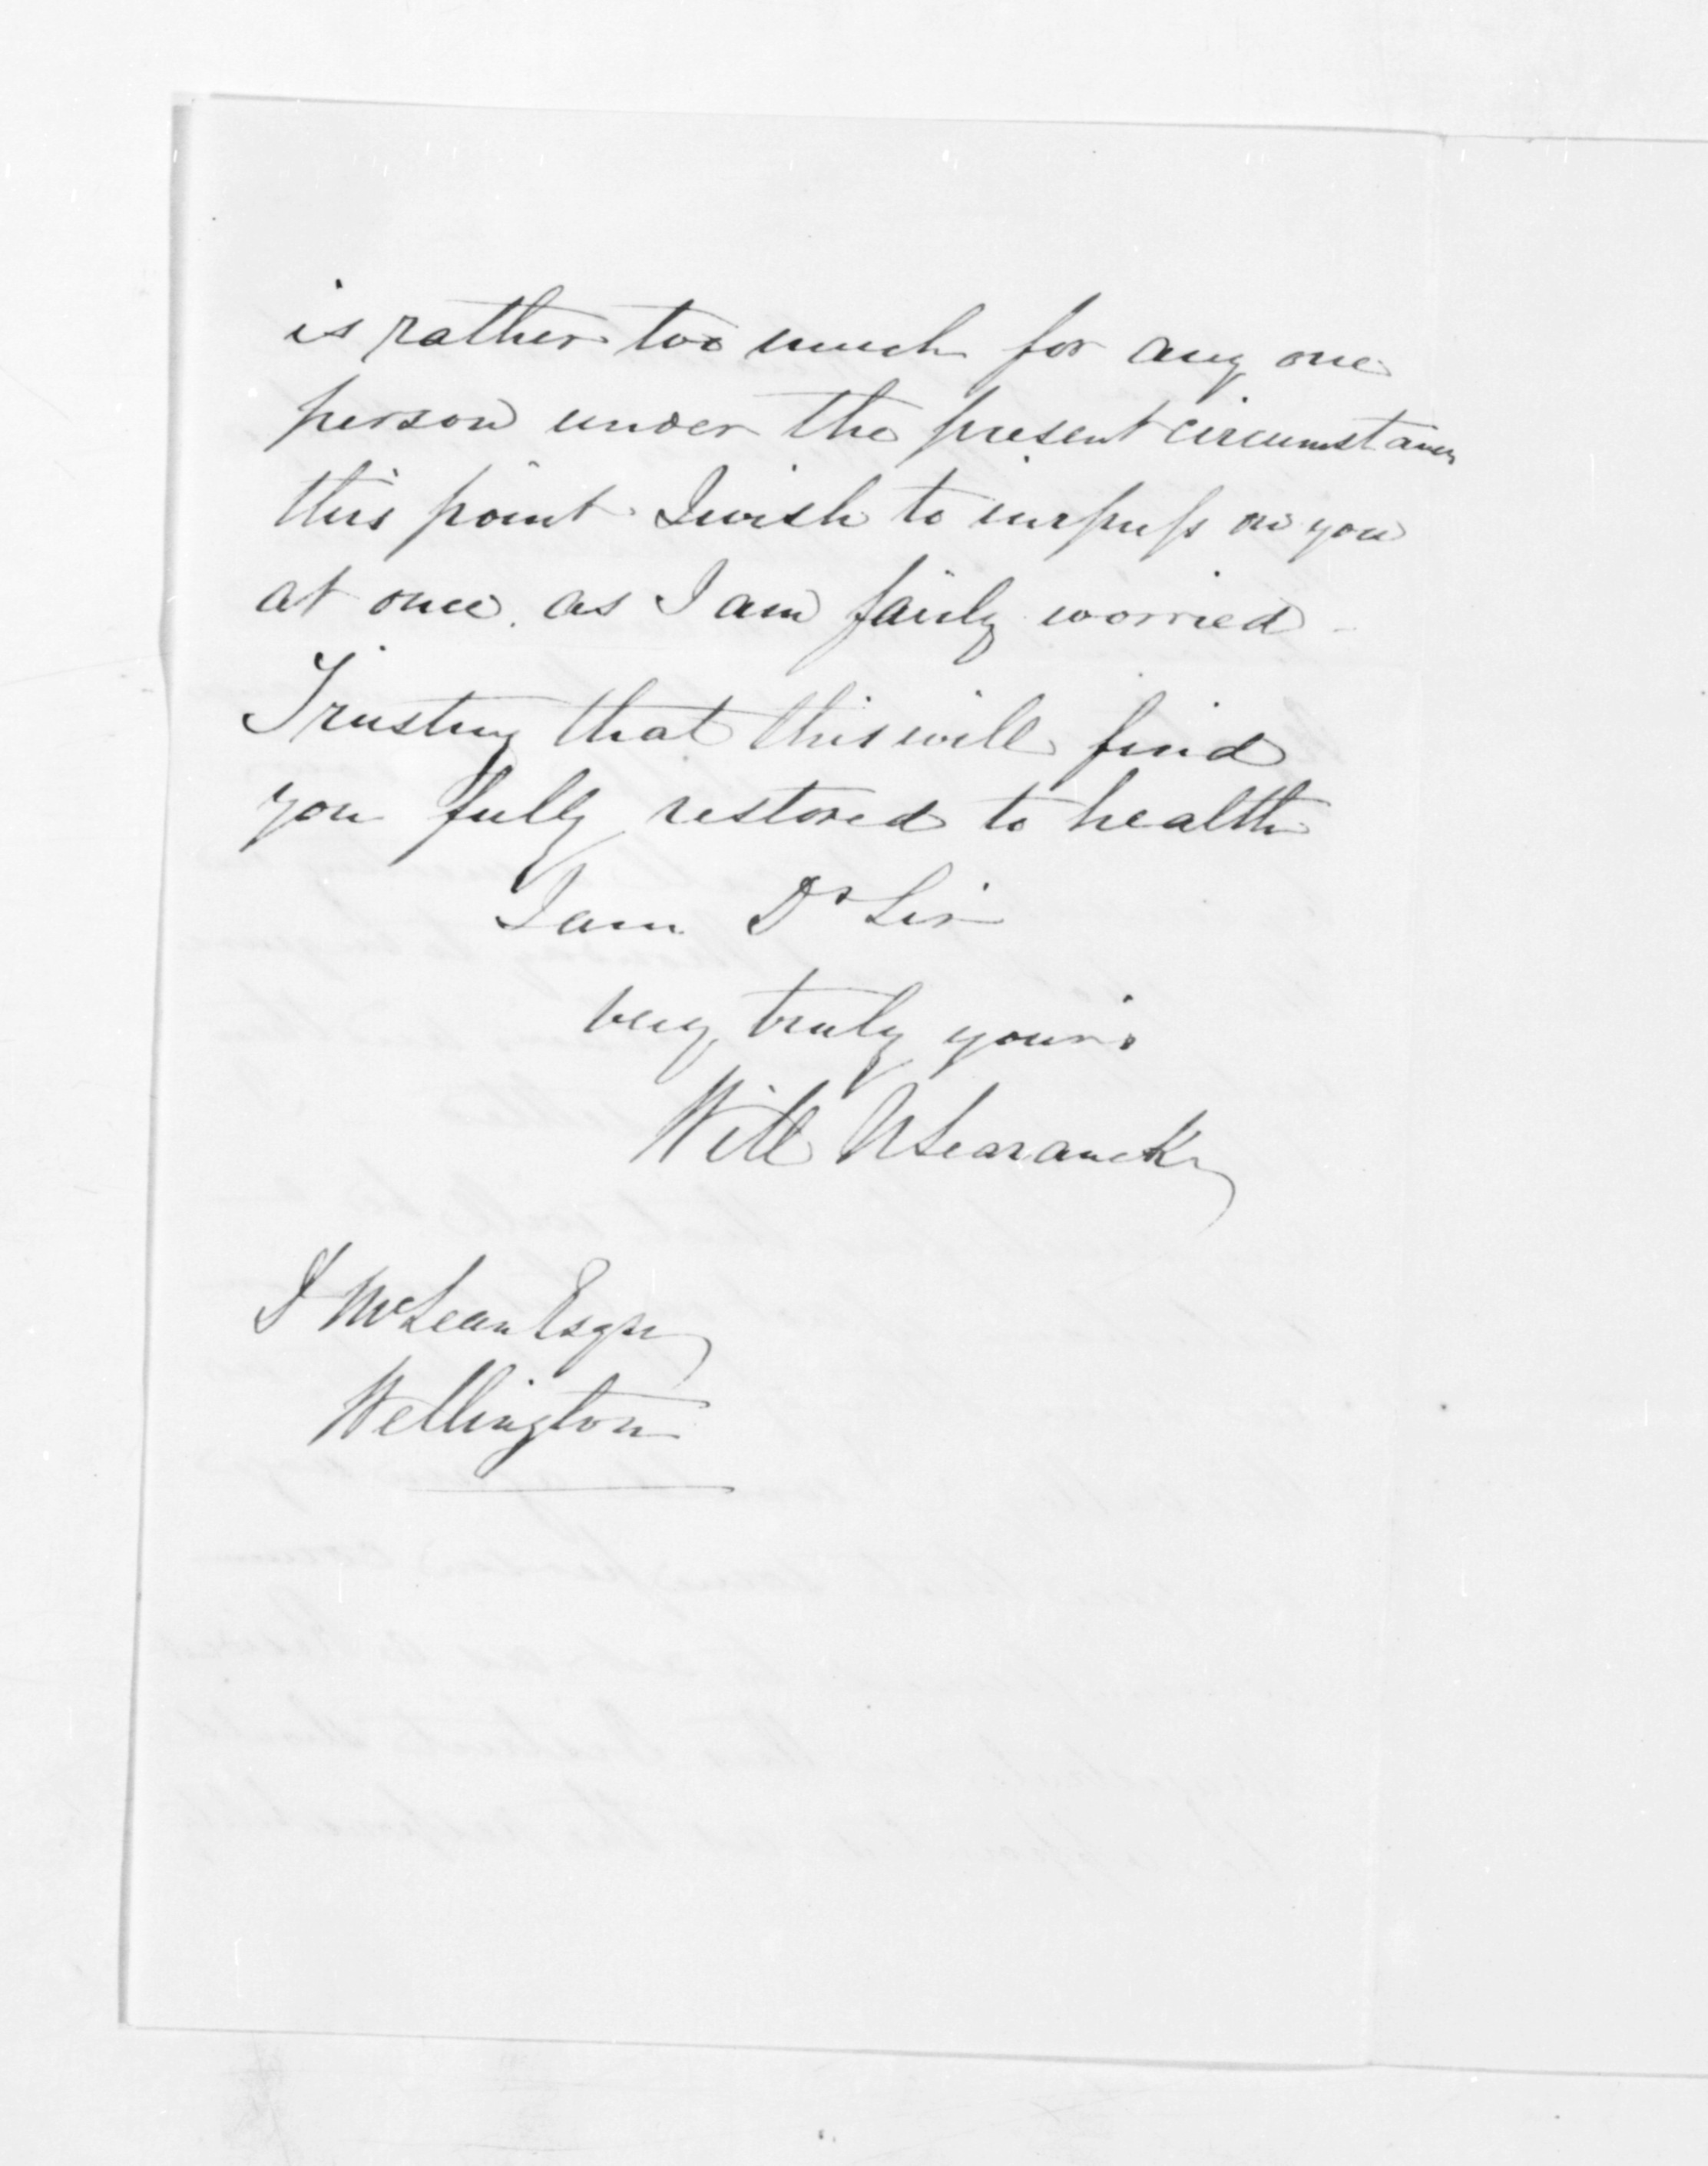 is rather too much for any one
person under the present circumstances
this point I wish to impress on you
at once. as I am fairly worried -
Trusting that this will find
you fully restored to health
I am Dr Sir
very truly yours
Will N Searancke
D McLean Esqre
Wellington